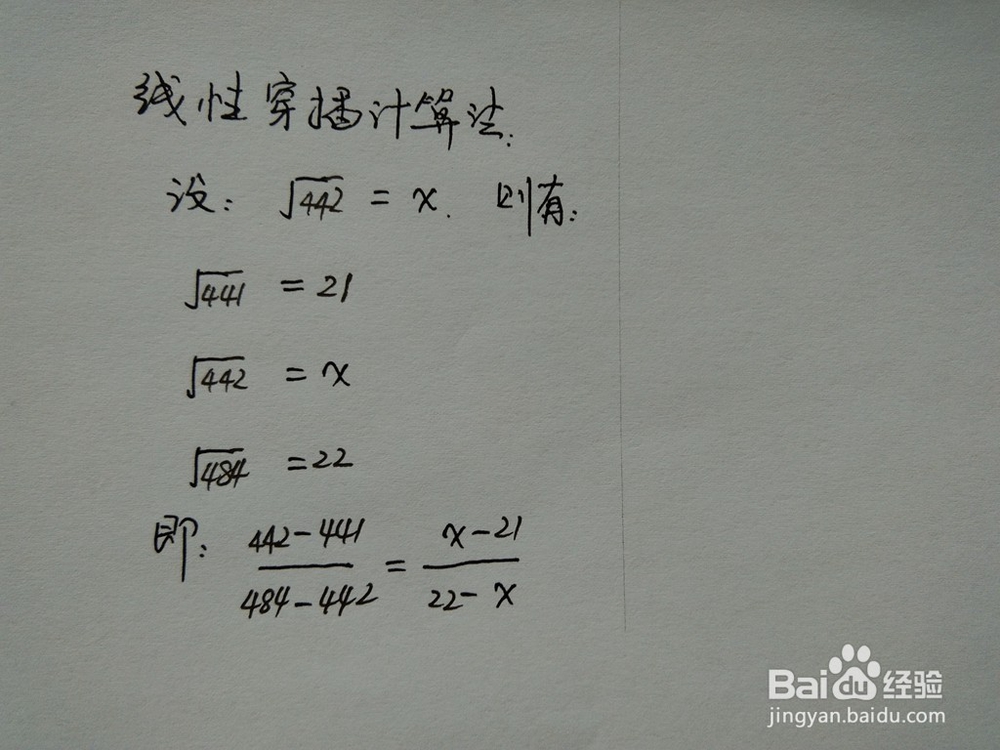 线性穿插计算法:
设: √442 = x. 则有:
√441 = 21
√442 = x
√484 = 22
即: (442-441)/(484-442) = (x-21)/(22-x)
Baidu经验
jingyan.baidu.com